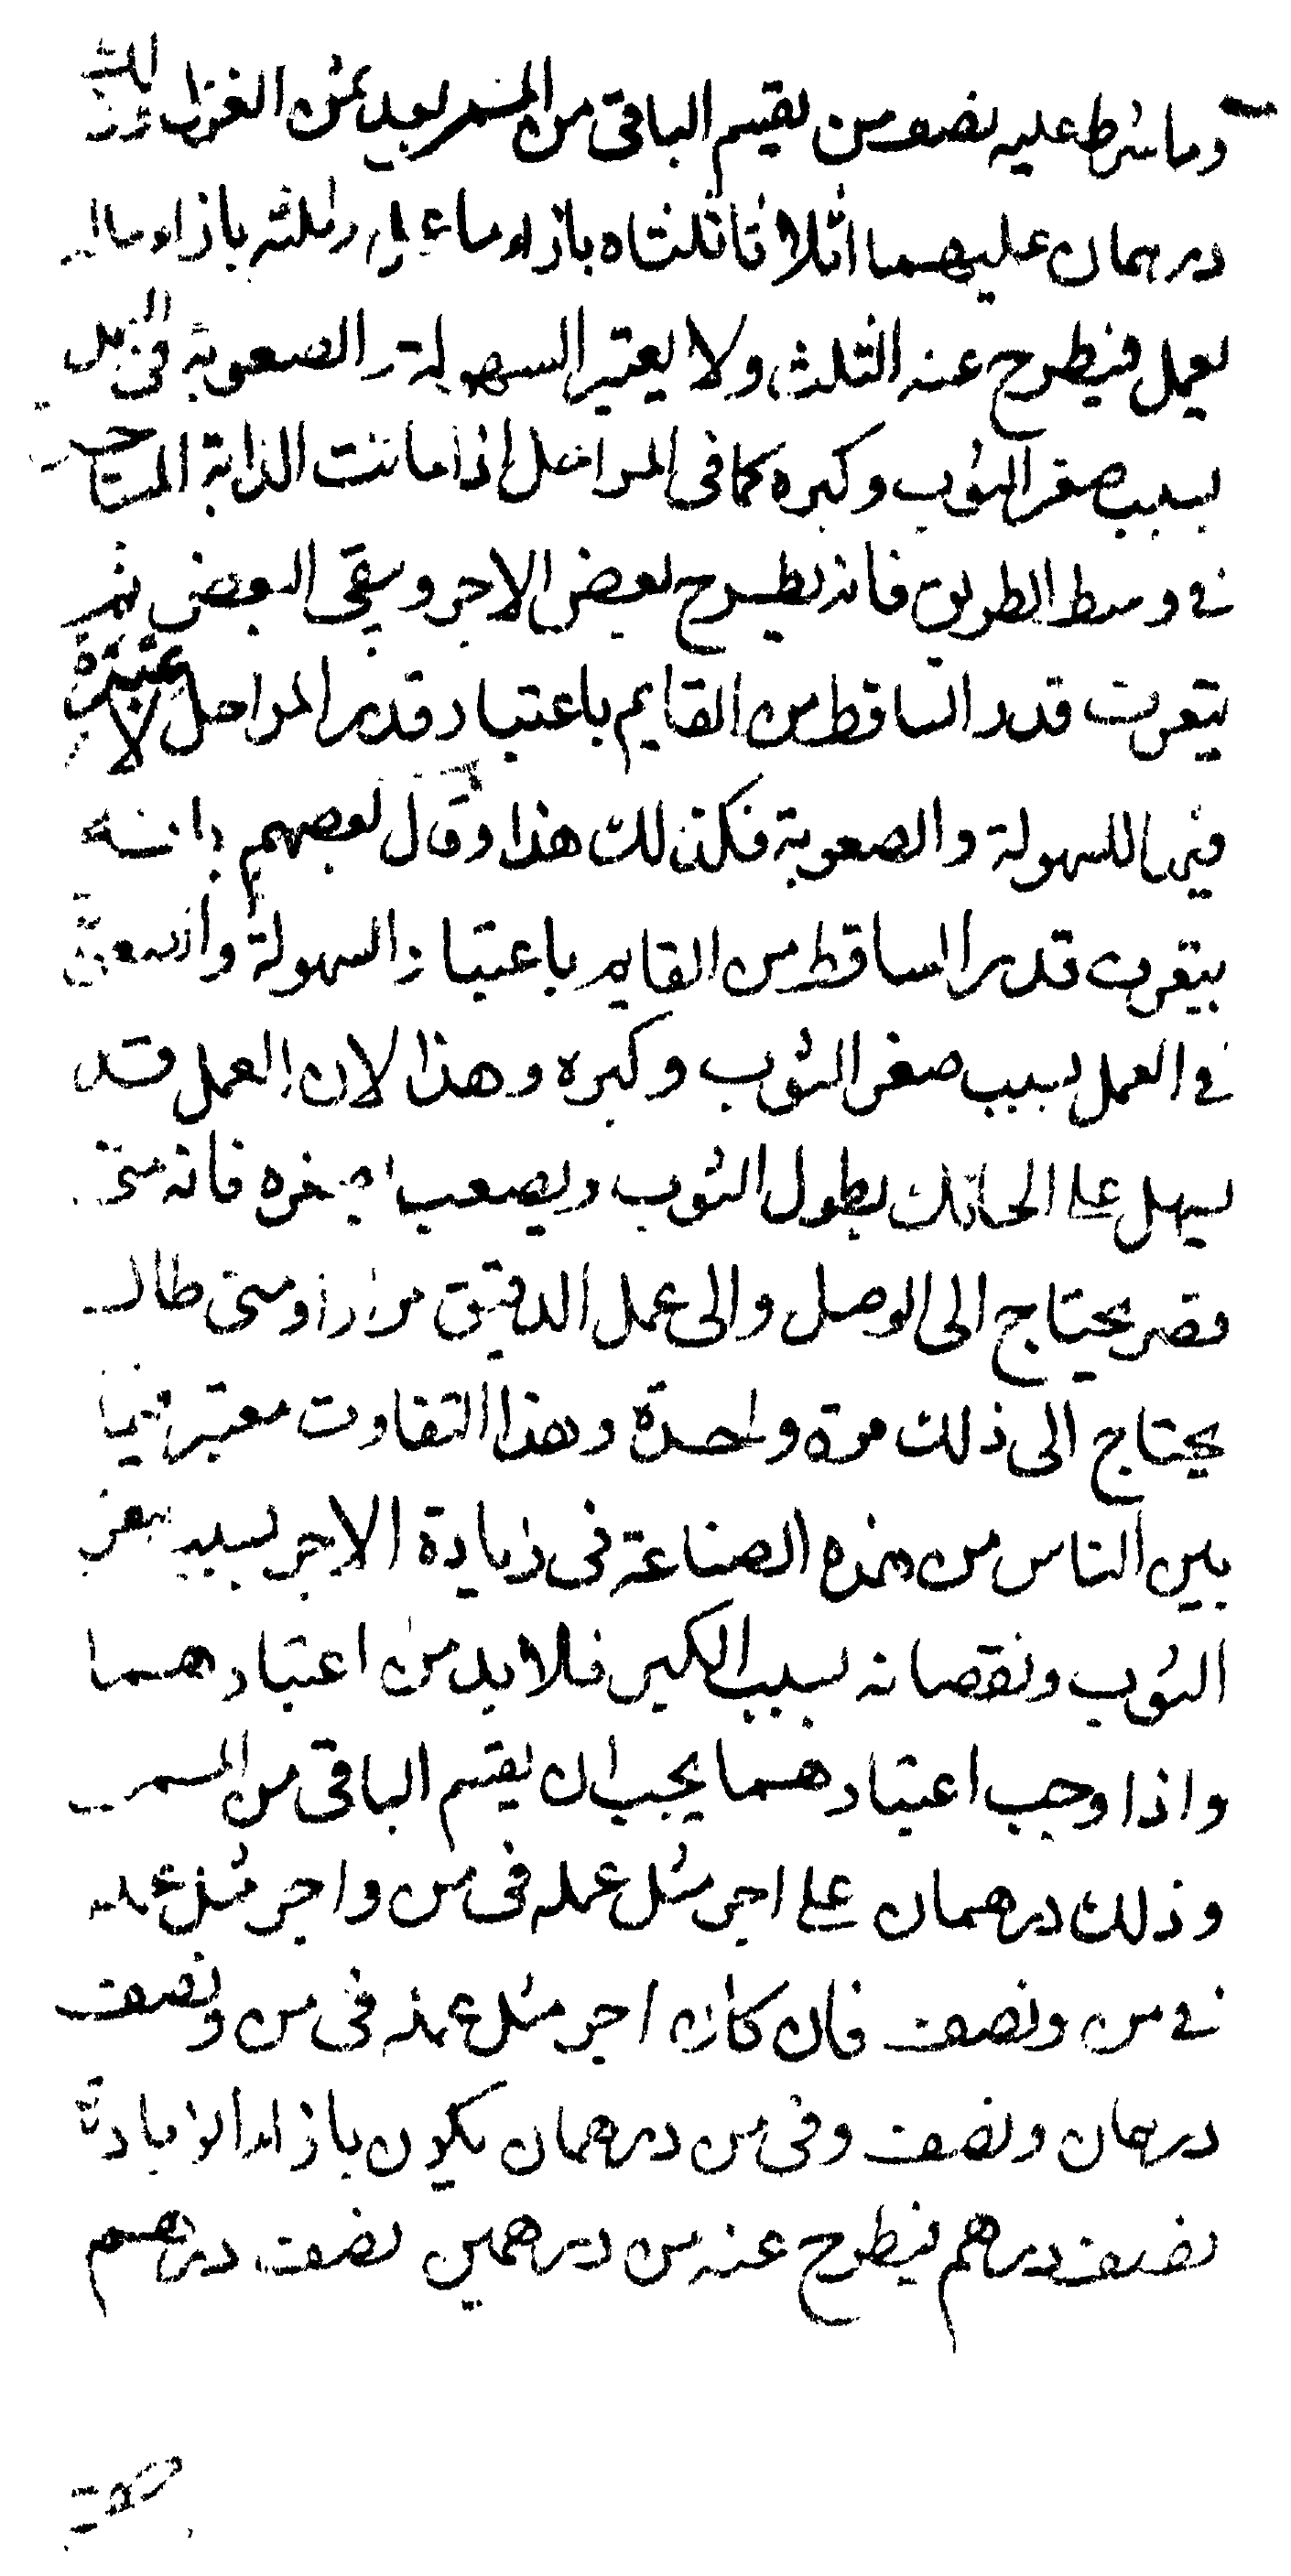 وما شرط عليه نصف من يقسم الباقى من المسمى بعد ثمن الغزل وذلك
درهمان عليهما اثلاثا ثلثاه بازاء ما عمل وثلثه بازاء ما لم
يعمل فيطرح عنه الثلث ولا يعتبر السهولة والصعوبة فى
بسبب صغر الثوب وكبره كما فى المراحل اذا ماتت الدابة المستاجرة
فى وسط الطريق فانه يطرح بعض الاجر ويبقى البعض ثم
يتعرف قدر الساقط من القايم باعتبار قدر المراحل لا عبرة
فيها للسهولة والصعوبة فكذلك هذا وقال بعضهم بانه
يتعرف قدر الساقط من القايم باعتبار السهولة والصعوبة
فى العمل بسبب صغر الثوب وكبره وهذا لان العمل قد
يسهل على الحائك بطول الثوب ويصعب بصغره فانه متى
قصر يحتاج الى الوصل والى عمل الدقيق مرارا ومتى طال
يحتاج الى ذلك مرة واحدة وهذا التفاوت معتبر فيما
بين الناس من هذه الصناعة فى زيادة الاجر بسبب صغر
الثوب ونقصانه بسبب الكبر فلا بد من اعتبارهما
واذا وجب اعتبارهما يجب ان يقسم الباقى من المسمى
وذلك درهمان على اجر مثل عمله فى من واجر مثل عمله
فى من ونصف فان كان اجر مثل عمله فى من ونصف
درهمان ونصف وفى من درهمان يكون بازاء الزيادة
نصف درهم فيطرح عنه من درهمين نصف درهم